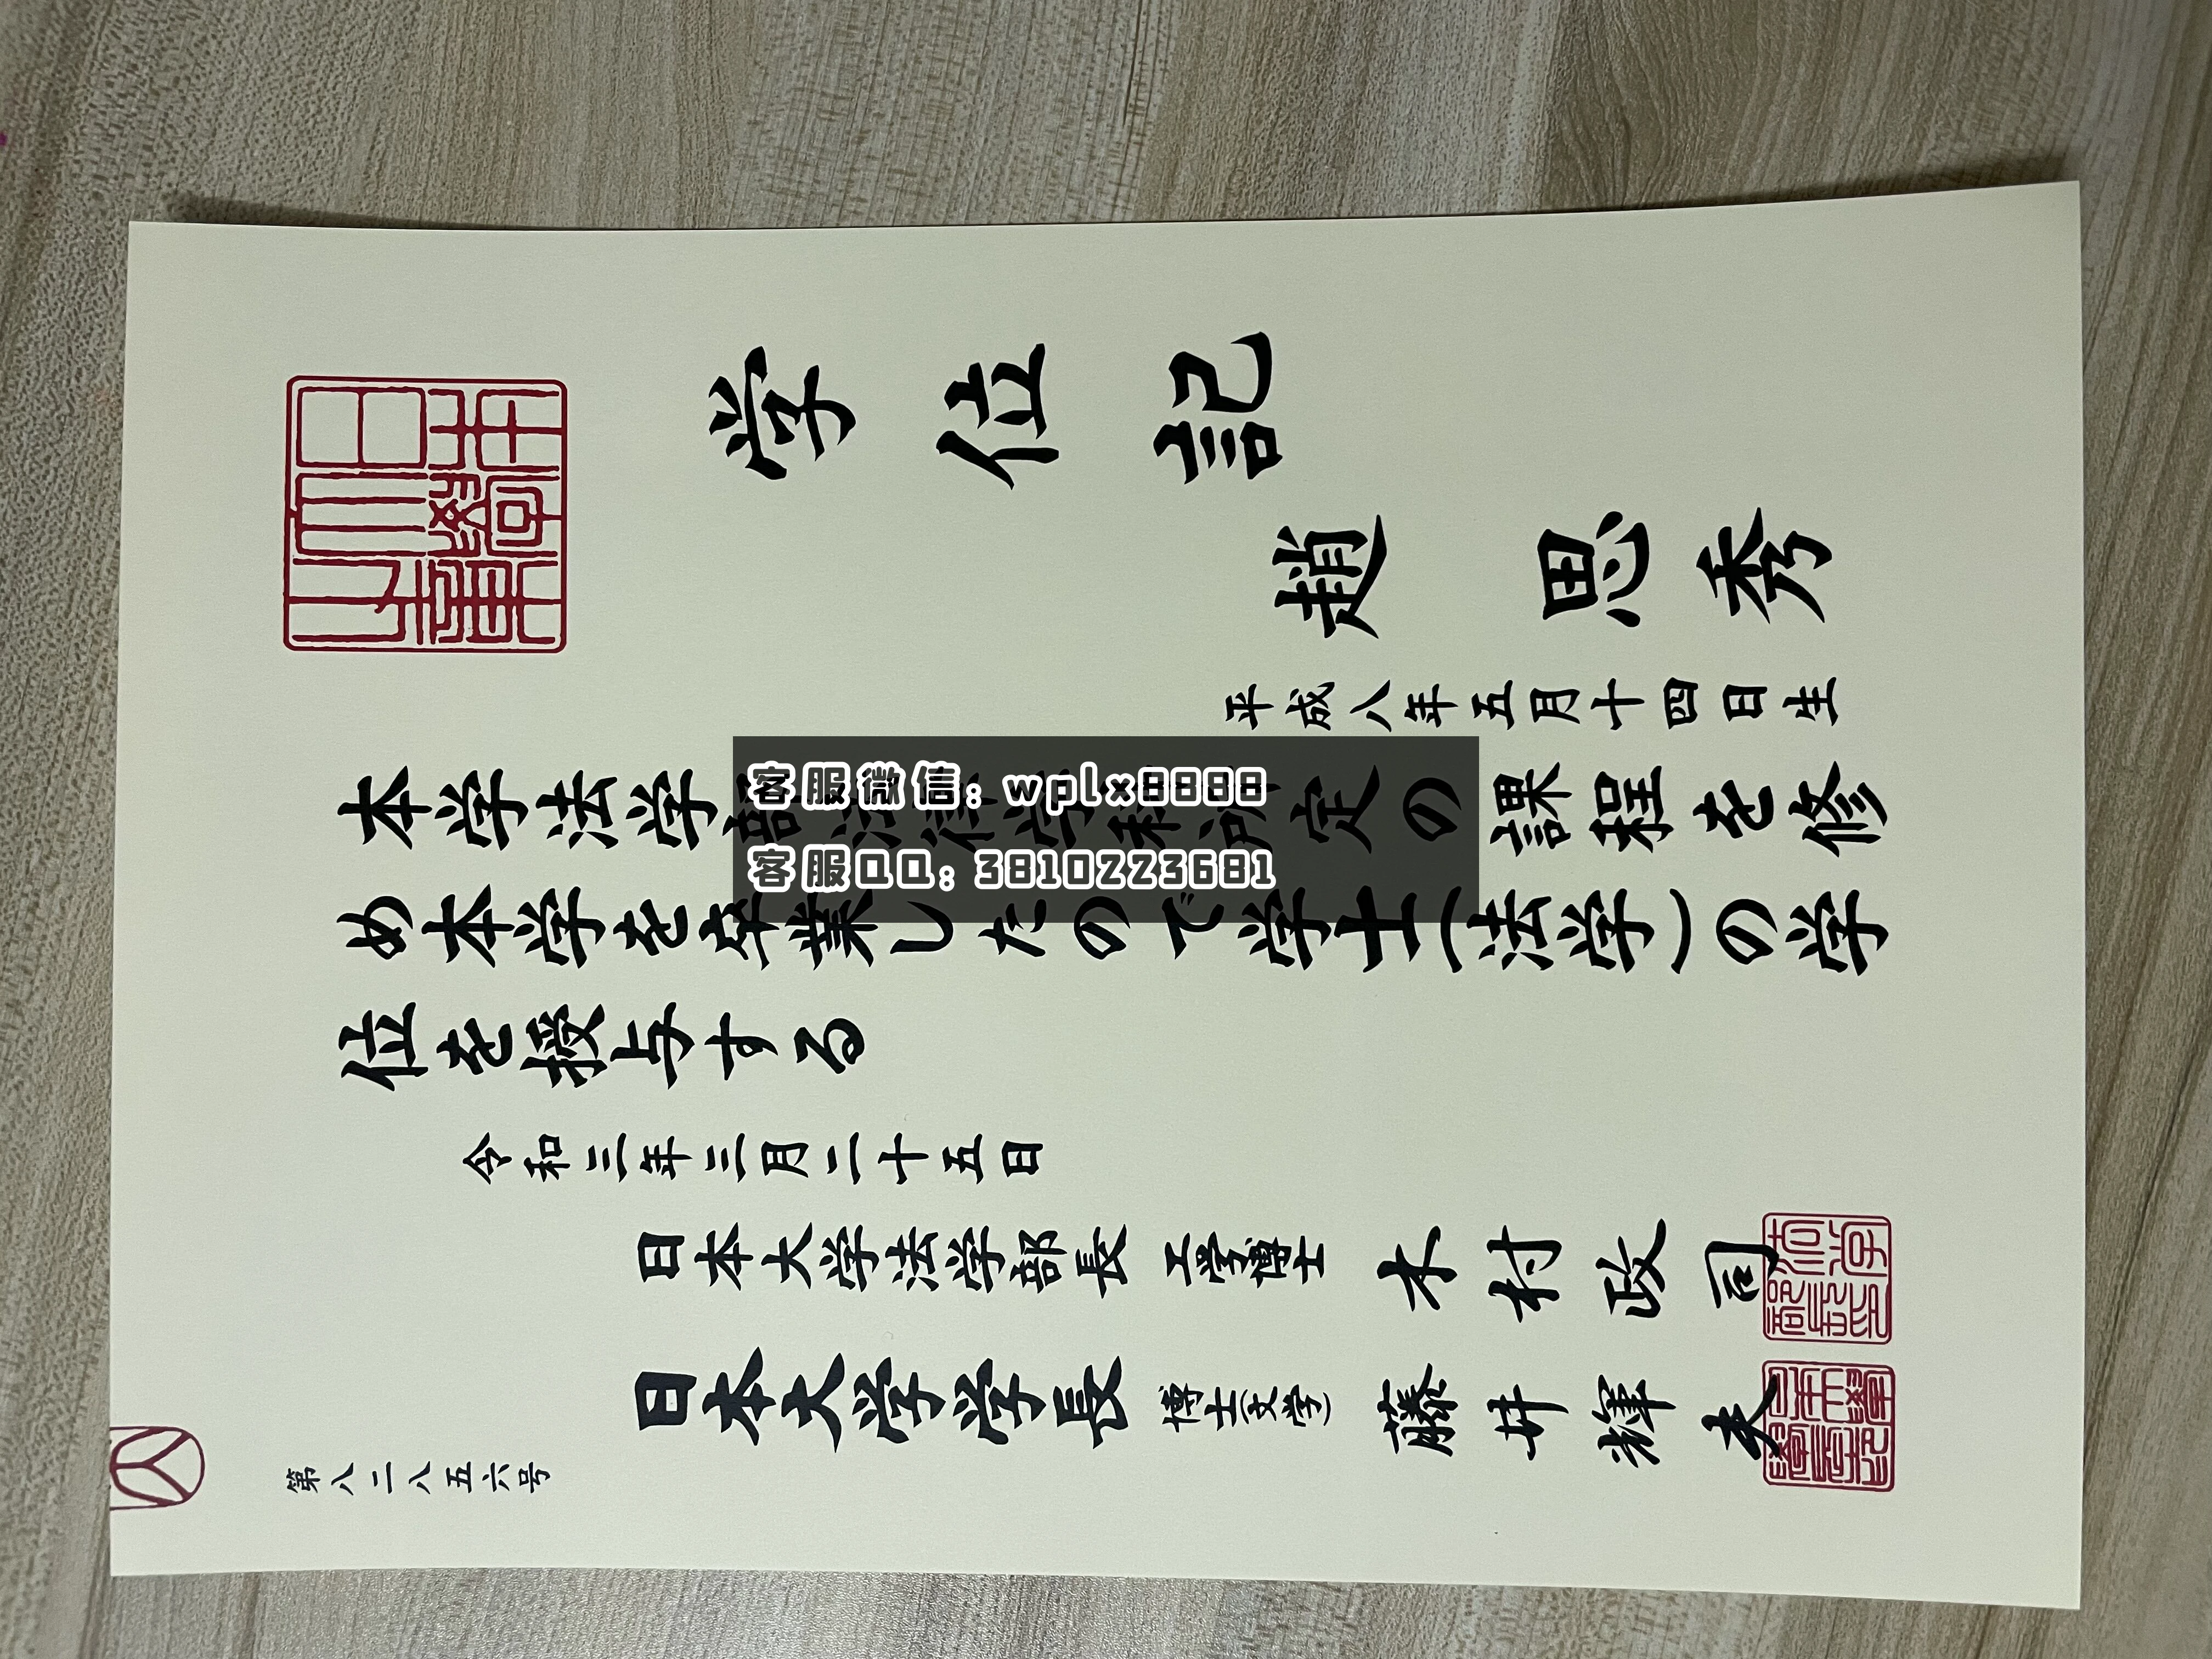 学位記
趙 思秀
平成八年五月十四日生
本学法学部法律学科所定の課程を修
め本学を卒業したので学士(法学)の学
位を授与する
令和三年三月二十五日
日本大学法学部長 工学博士 木村政司
日本大学学長 博士(文学) 藤井輝夫
第八二八五六号
客服微信: wplx8888
客服QQ: 3810223681